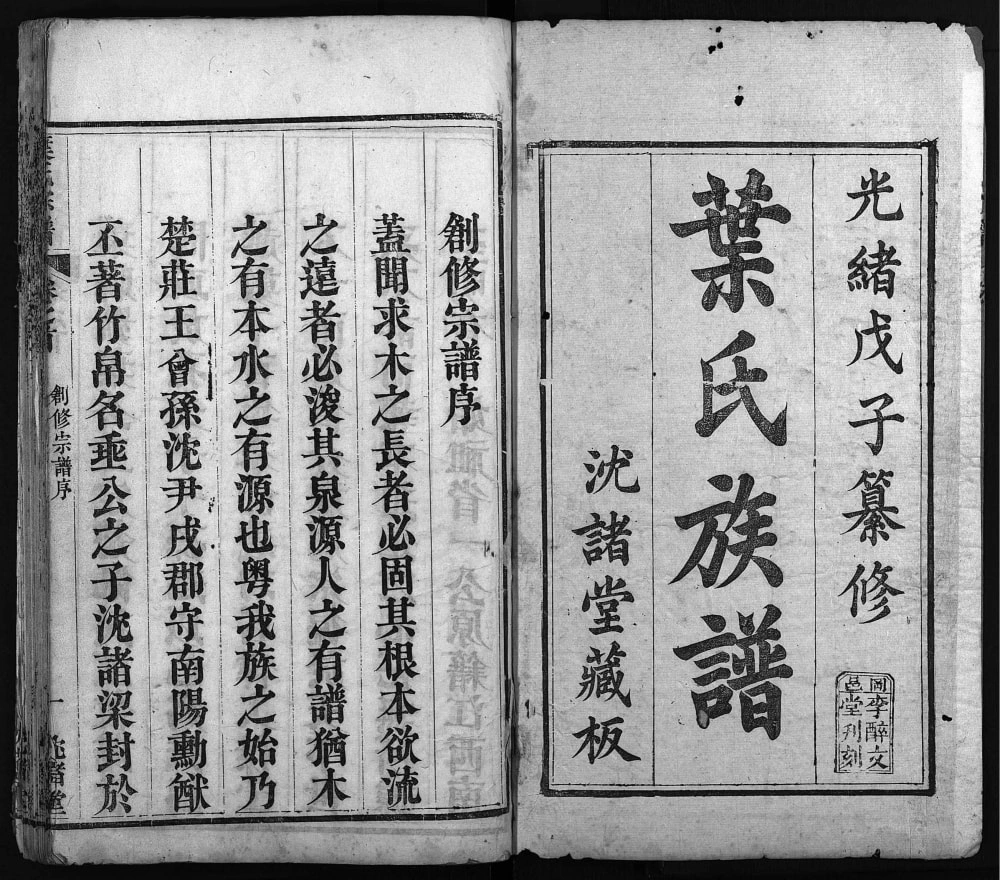 光緒戊子纂修
同李醉文
邑堂刋刻
葉氏族譜
沈諸堂藏板
創修宗譜序
蓋聞求木之長者必固其根本欲流
之遠者必浚其泉源人之有譜猶木
之有本水之有源也粤我族之始乃
楚莊王曾孫沈尹戌郡守南陽勳猷
丕著竹帛名垂公之子沈諸梁封於
創修宗譜序
一
沈諸堂